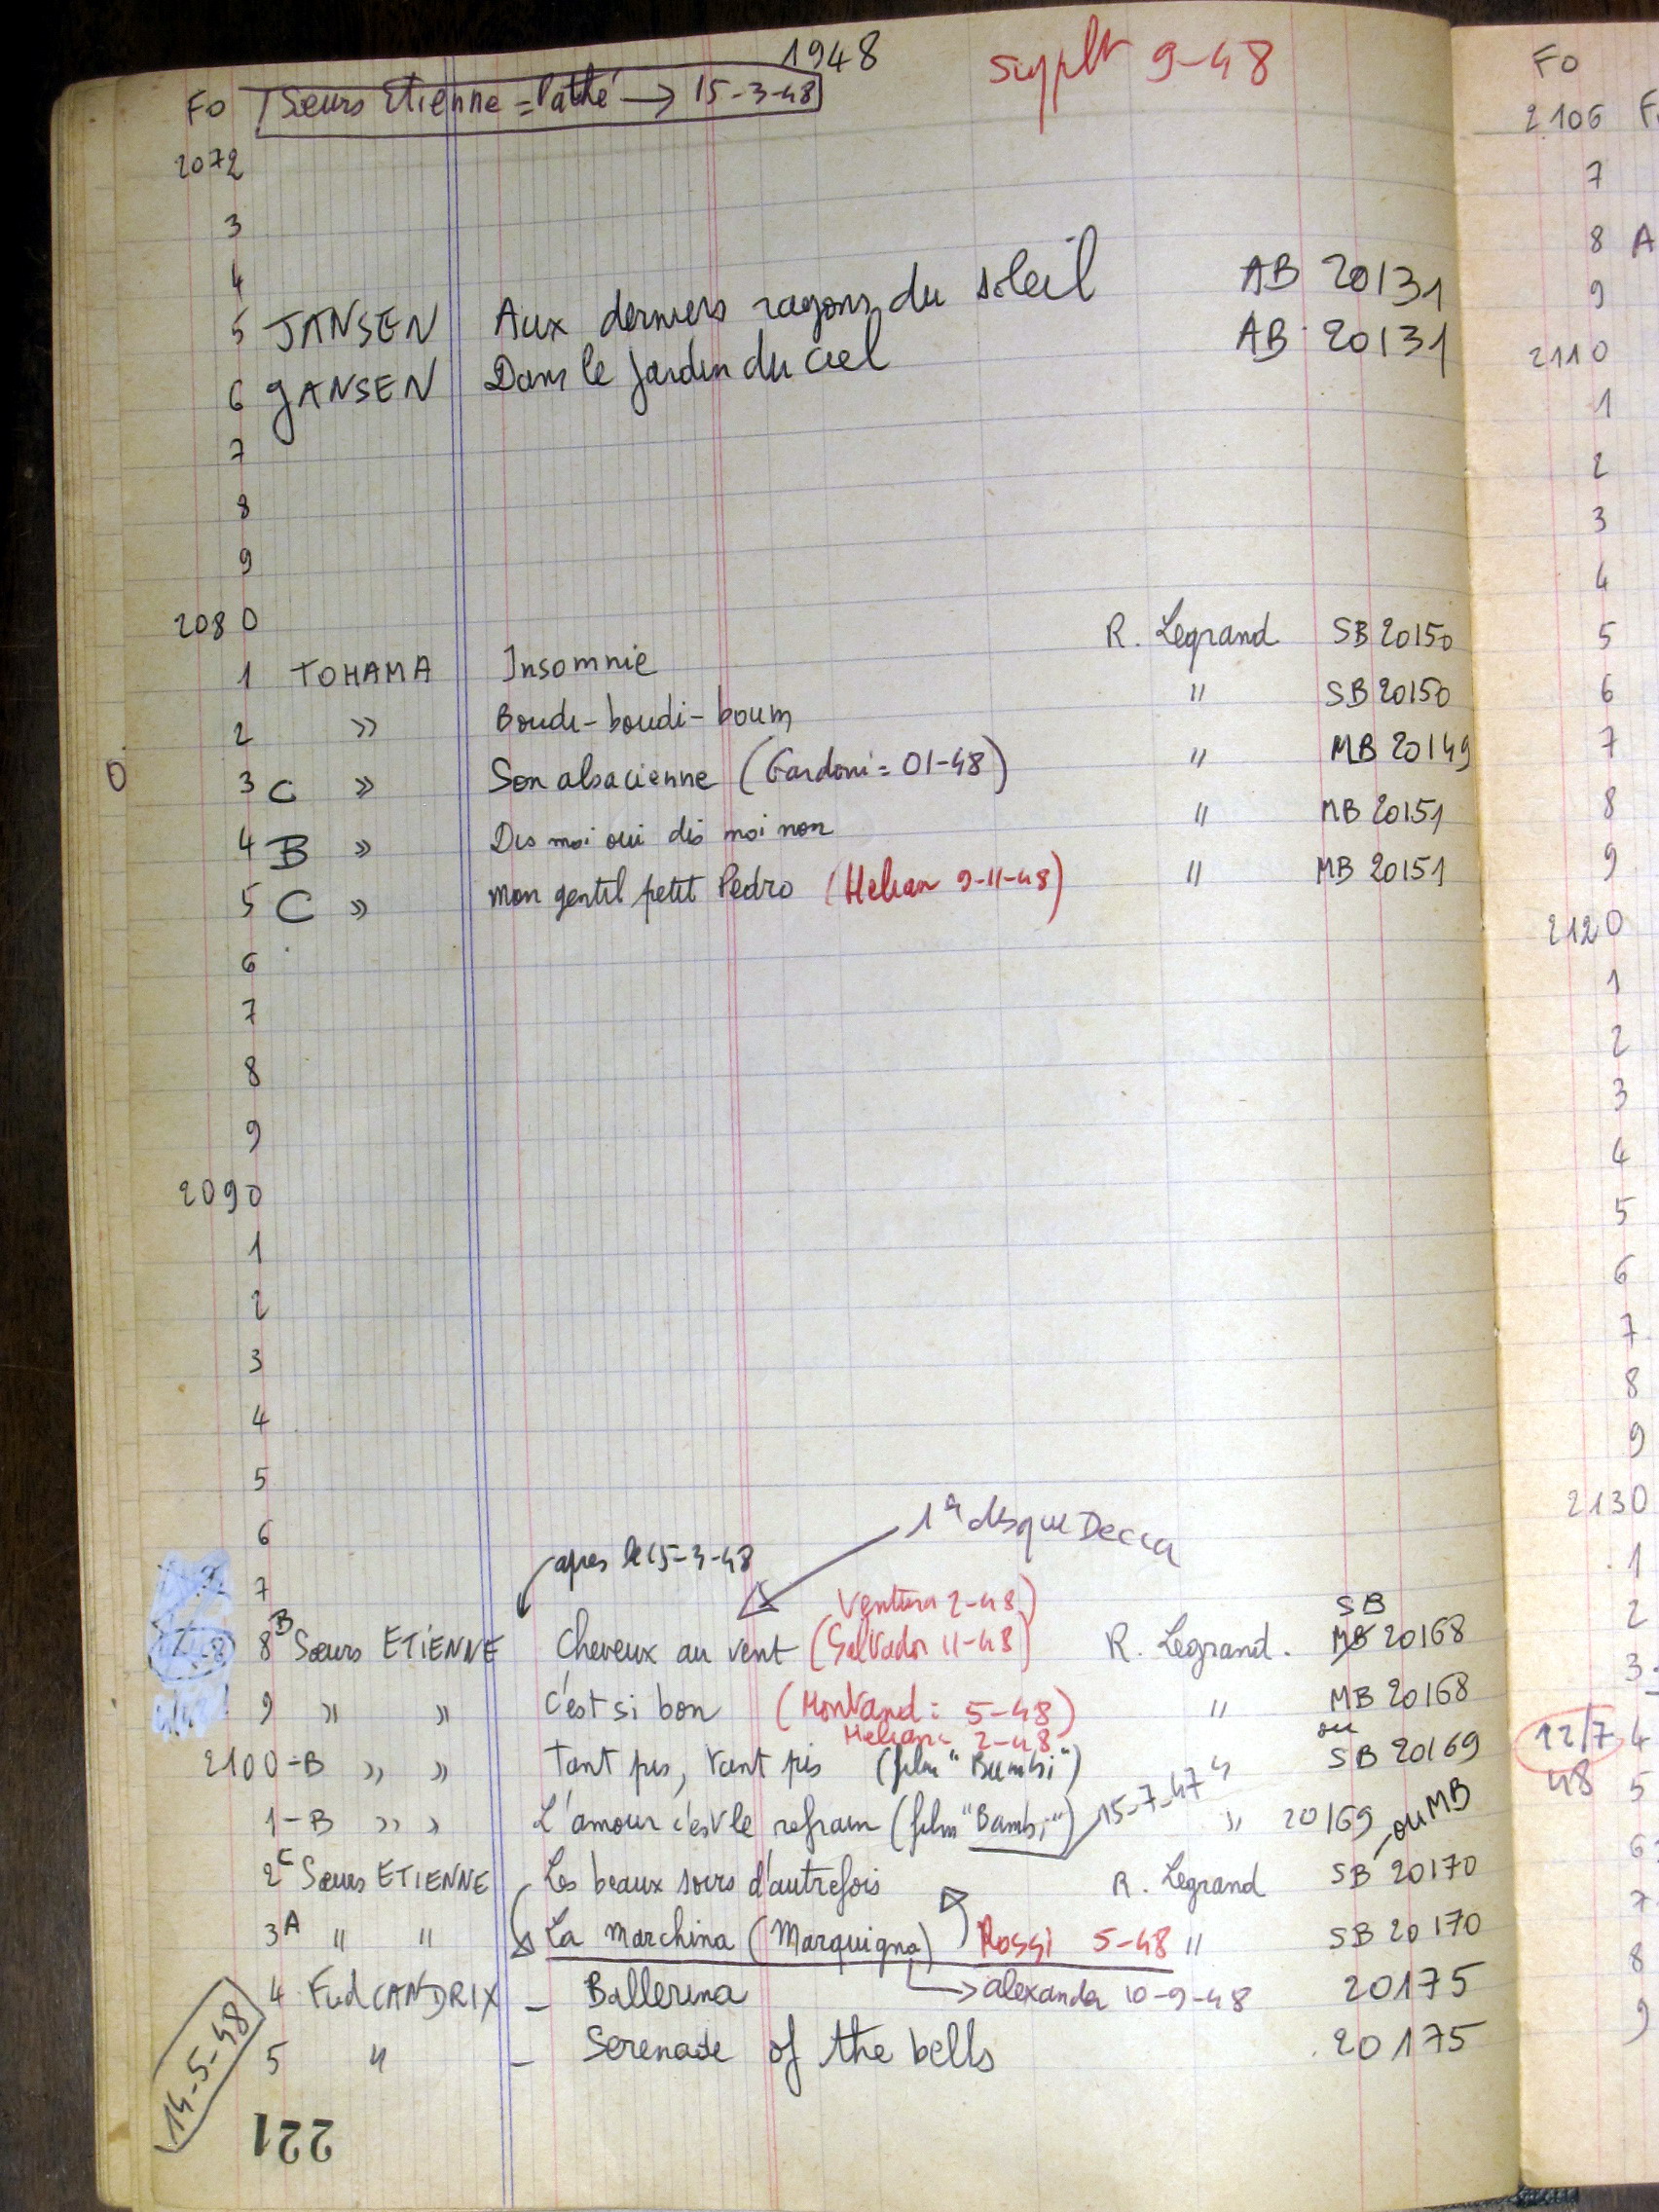 1948
supplt 9-48
Fo Sœurs Etienne = Pathé → 15-3-48
2072
3
4
5 JANSEN Aux derniers rayons du soleil AB 20131
6 JANSEN Dans le jardin du ciel AB 20131
7
8
9
2080
1 TOHAMA Insomnie R. Legrand SB 20150
2 » Boudi-boudi-boum " SB 20150
3 C » Son alsacienne (Gardoni = 01-48) " MB 20149
4 B » Dis moi oui dis moi non " MB 20151
5 C » Mon gentil petit Pedro (Helian 9-11-48) " MB 20151
6
7
8
9
2090
1
2
3
4
5
6
1er disque Decca
après le 15-3-48
7
Ventura 2-48)
SB
8 B Sœurs ETIENNE Cheveux au vent (Salvador 11-48) R. Legrand. MB 20168
9 » » C'est si bon (Montand : 5-48) " MB 20168
Helian = 2-48
ou
2100-B » » Tant pis, tant pis (film "Bambi") " SB 20169
1-B » » L'amour c'est le refrain (film "Bambi") 15-7-47 » 20169 ou MB
2 C Sœurs ETIENNE Les beaux soirs d'autrefois R. Legrand SB 20170
3 A " " La Marchina (Marquigna) Rossi 5-48 " SB 20170
4 Fud CANDRIX - Ballerina → alexander 10-9-48 20175
5 " - Serenade of the bells 20175
14-5-48
221
Fo
2106
7
8 A
9
2110
1
2
3
4
5
6
7
8
9
2120
1
2
3
4
5
6
7
8
9
2130
1
2
3
12/7 4
48 5
6
7
8
9